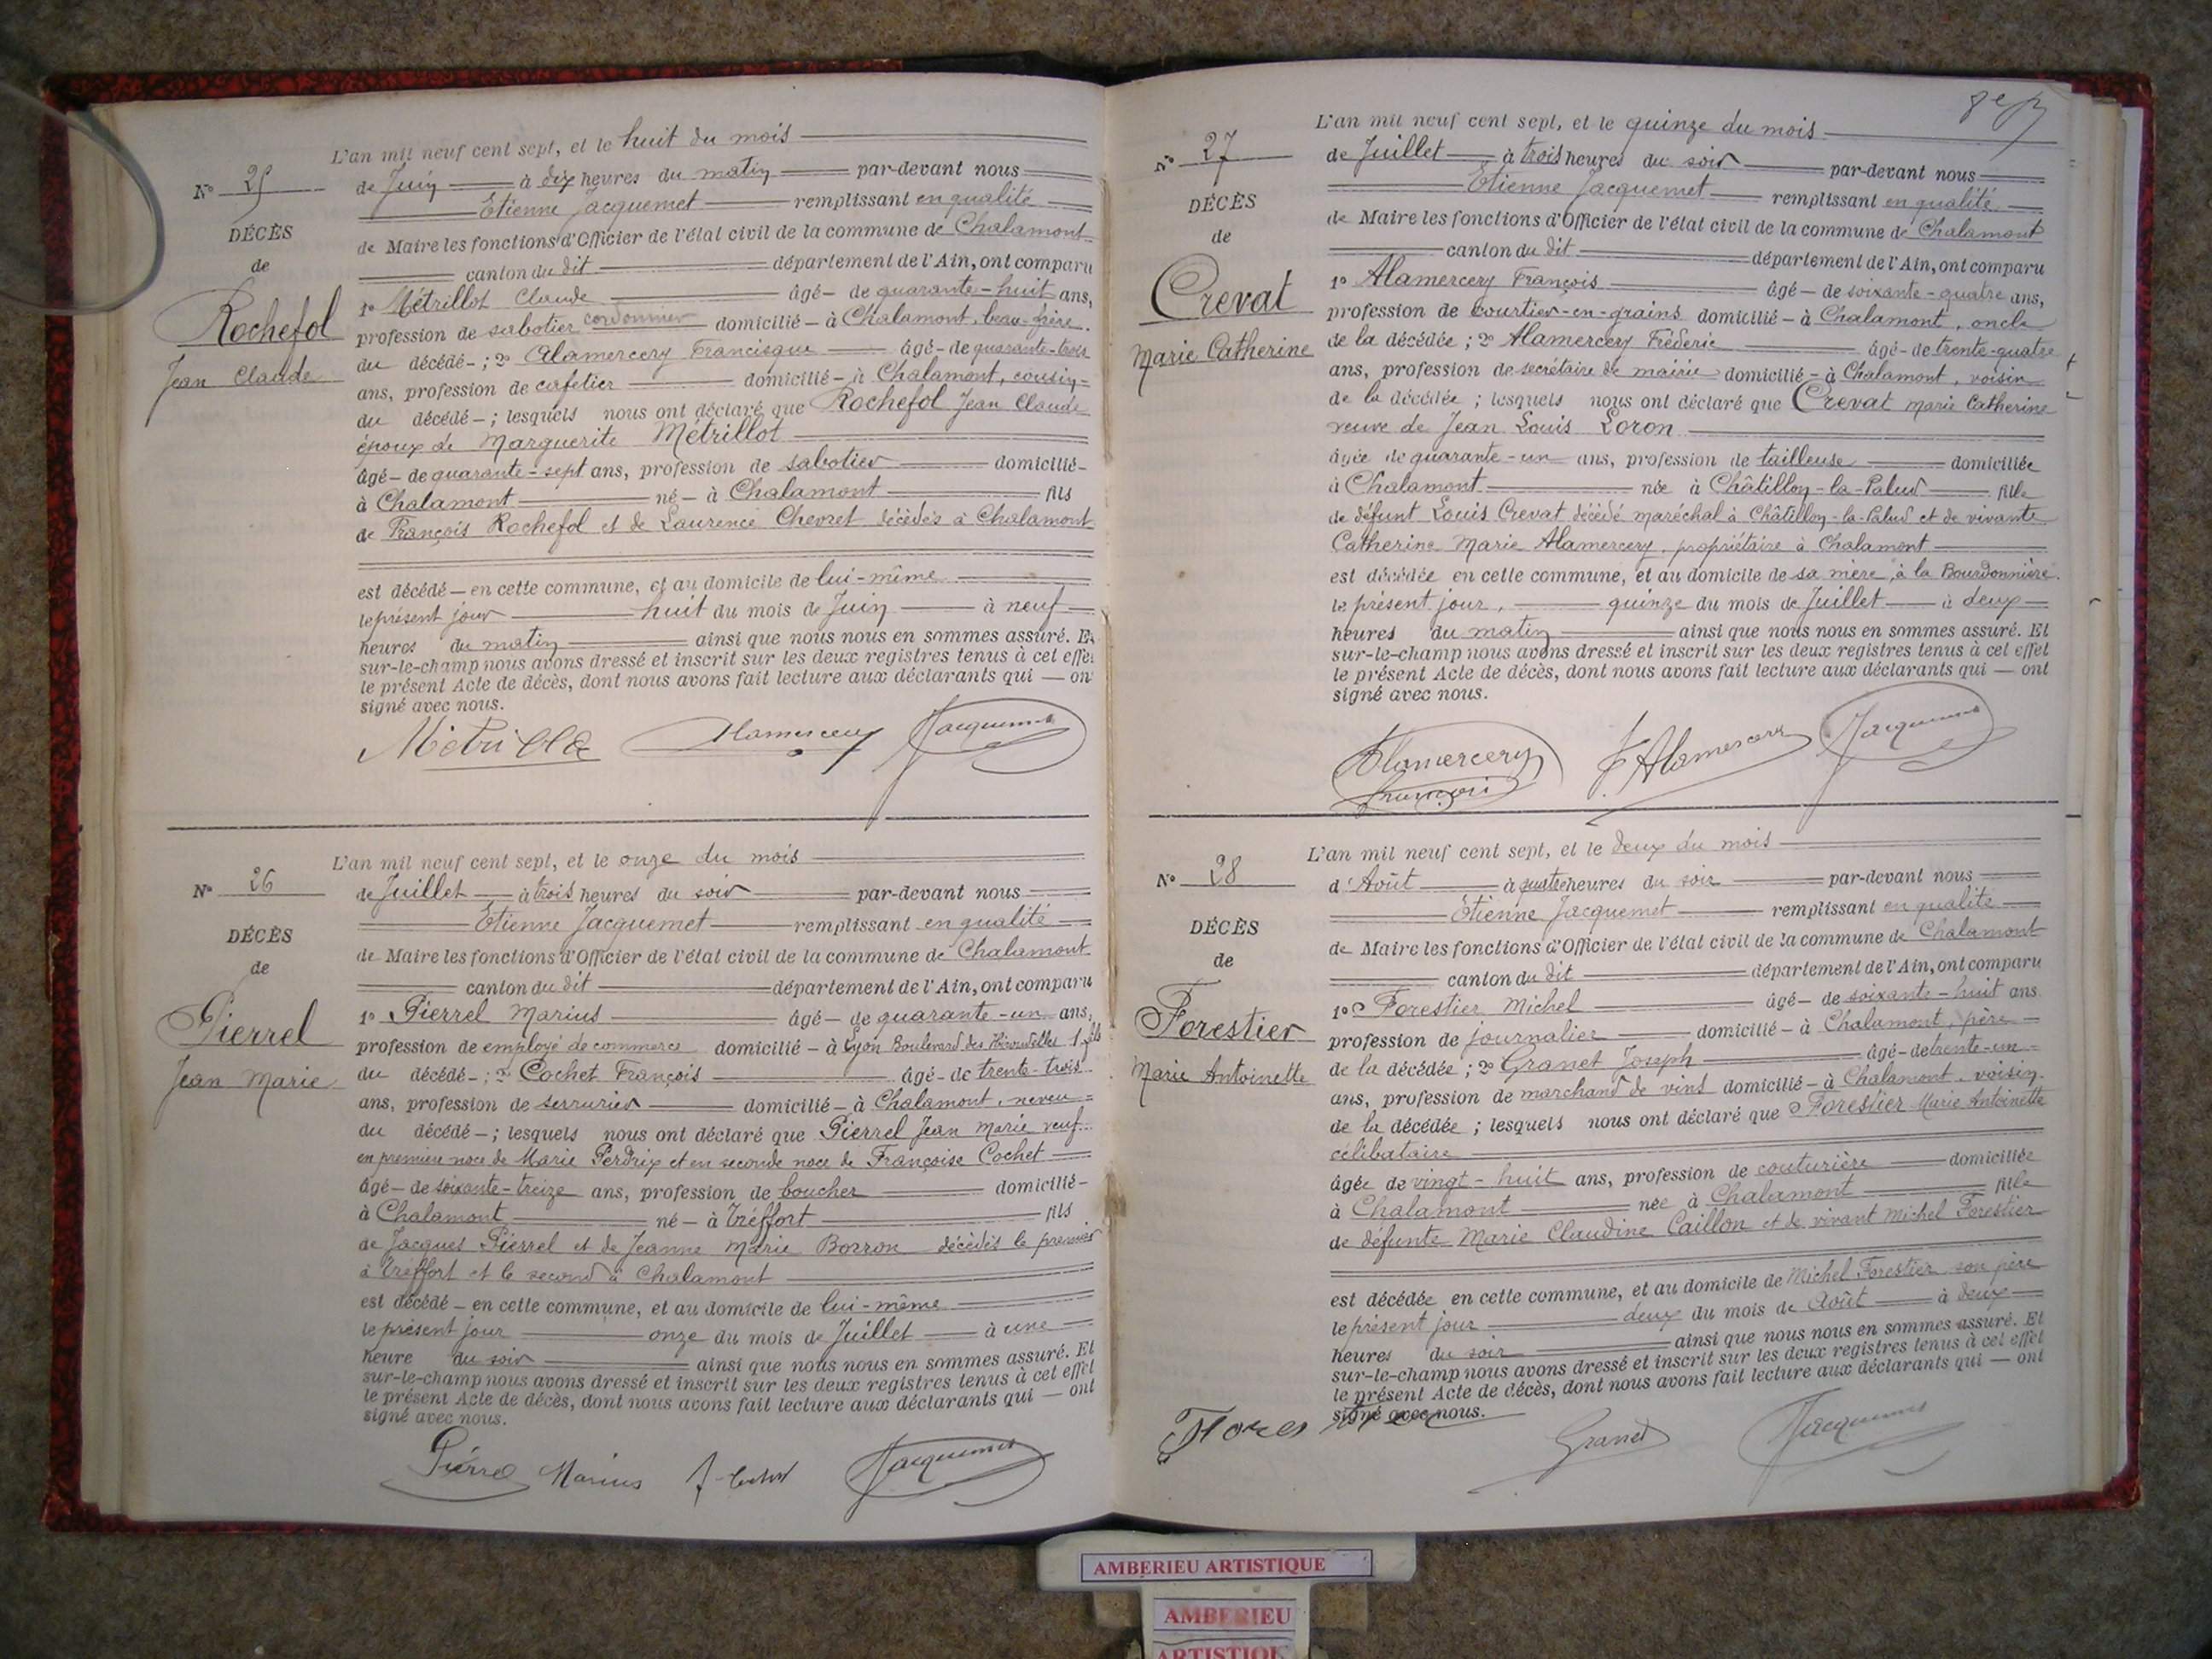 L'an mil neuf cent sept, et le huit du mois
N° 25
de Juin à dix heures du matin par-devant nous
Etienne Jacquemet remplissant en qualité
DÉCÈS
de Maire les fonctions d'Officier de l'état civil de la commune de Chalamont
de
canton du dit département de l'Ain, ont comparu
Rochefol
Jean Claude
1° Métrillot Claude âgé de quarante-huit ans,
profession de sabotier cordonnier domicilié à Chalamont, beau-frère
du décédé ; 2° Alamercery Francisque âgé de quarante-trois
ans, profession de cafetier domicilié à Chalamont, cousin
du décédé ; lesquels nous ont déclaré que Rochefol Jean Claude
époux de Marguerite Métrillot
âgé de quarante-sept ans, profession de sabotier domicilié
à Chalamont né à Chalamont fils
de François Rochefol et de Laurence décédés à Chalamont
est décédé en cette commune, et au domicile de lui-même
le présent jour huit du mois de Juin à neuf
heures du matin ainsi que nous nous en sommes assuré. Et
sur-le-champ nous avons dressé et inscrit sur les deux registres tenus à cet effet
le présent Acte de décès, dont nous avons fait lecture aux déclarants qui ont
signé avec nous.
Alamercery Jacquemet
L'an mil neuf cent sept, et le onze du mois
N° 26
de Juillet à trois heures du soir par-devant nous
Etienne Jacquemet remplissant en qualité
DÉCÈS
de Maire les fonctions d'Officier de l'état civil de la commune de Chalamont
de
canton du dit département de l'Ain, ont comparu
Pierrel
Jean Marie
1° Pierrel Marius âgé de quarante-un ans,
profession de employé de commerce domicilié à Lyon Boulevard des Hirondelles 1 fils
du décédé ; 2° Cochet François âgé de trente-trois
ans, profession de serrurier domicilié à Chalamont, neveu
du décédé ; lesquels nous ont déclaré que Pierrel Jean Marie veuf
en premier noce de Marie Perdrix et en seconde noce de Françoise Cochet
âgé de soixante-treize ans, profession de boucher domicilié
à Chalamont né à Tréffort fils
de Jacques Pierrel et de Jeanne Marie Borron décédés le premier
à Tréffort et le second à Chalamont
est décédé en cette commune, et au domicile de lui-même
le présent jour onze du mois de Juillet à une
heure du soir ainsi que nous nous en sommes assuré. Et
sur-le-champ nous avons dressé et inscrit sur les deux registres tenus à cet effet
le présent Acte de décès, dont nous avons fait lecture aux déclarants qui ont
signé avec nous.
Pierrel Marius Jacquemet
L'an mil neuf cent sept, et le quinze du mois
N° 27
de Juillet à trois heures du soir par-devant nous
Etienne Jacquemet remplissant en qualité
DÉCÈS
de Maire les fonctions d'Officier de l'état civil de la commune de Chalamont
de
canton du dit département de l'Ain, ont comparu
Crevat
Marie Catherine
1° Alamercery François âgé de soixante-quatre ans,
profession de courtier-en-grains domicilié à Chalamont, oncle
de la décédée ; 2° Alamercery Fréderic âgé de trente-quatre
ans, profession de secrétaire de mairie domicilié à Chalamont, voisin
de la décédée ; lesquels nous ont déclaré que Crevat Marie Catherine
veuve de Jean Louis Loron
âgée de quarante-un ans, profession de tailleuse domiciliée
à Chalamont née à Châtillon-la-Palud fille
de défunt Louis Crevat décédé maréchal à Châtillon-la-Palud et de vivante
Catherine Marie Alamercery, propriétaire à Chalamont
est décédée en cette commune, et au domicile de sa mère, à la Bourdonnière
le présent jour, quinze du mois de Juillet à deux
heures du matin ainsi que nous nous en sommes assuré. Et
sur-le-champ nous avons dressé et inscrit sur les deux registres tenus à cet effet
le présent Acte de décès, dont nous avons fait lecture aux déclarants qui ont
signé avec nous.
Alamercery F Alamercery Jacquemet
François
L'an mil neuf cent sept, et le deux du mois
N° 28
d'Août à quatre heures du soir par-devant nous
Etienne Jacquemet remplissant en qualité
DÉCÈS
de Maire les fonctions d'Officier de l'état civil de la commune de Chalamont
de
canton du dit département de l'Ain, ont comparu
Forestier
Marie Antoinette
1° Forestier Michel âgé de soixante-huit ans
profession de journalier domicilié à Chalamont, père
de la décédée ; 2° Granet Joseph âgé de trente-un
ans, profession de marchand de vins domicilié à Chalamont, voisin
de la décédée ; lesquels nous ont déclaré que Forestier Marie Antoinette
célibataire
âgée de vingt-huit ans, profession de couturière domiciliée
à Chalamont née à Chalamont fille
de défunte Marie Claudine Caillon et de vivant Michel Forestier
est décédée en cette commune, et au domicile de Michel Forestier son père
le présent jour deux du mois de Août à deux
heures du soir ainsi que nous nous en sommes assuré. Et
sur-le-champ nous avons dressé et inscrit sur les deux registres tenus à cet effet
le présent Acte de décès, dont nous avons fait lecture aux déclarants qui ont
signé avec nous.
Granet Jacquemet
AMBERIEU ARTISTIQUE
AMBERIEU
ARTISTIQUE